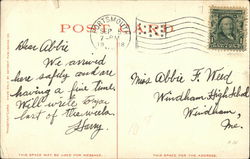 POST CARD
PORTSMOUTH
SEP
7-PM
Dear Abbie
We arrived
here safely and are
having a fine time.
Will write to you
last of the week.
Harry.
Miss Abbie F. Weed
Windham High School
Windham,
Me.
THIS SPACE MAY BE USED FOR MESSAGE.
THIS SPACE FOR THE ADDRESS.